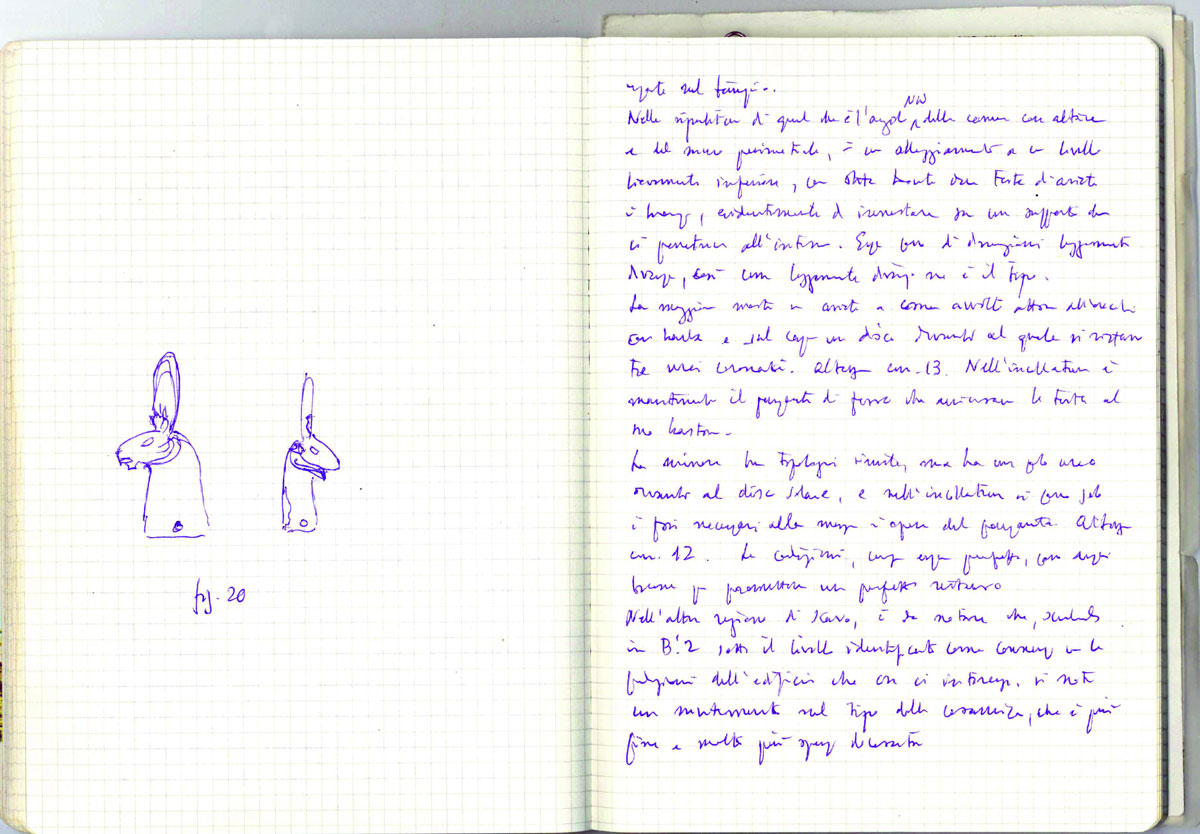 fig. 20
sul
Nelle di quel che è l'angolo NW della camera con altare
e del muro perimetrale, è un alleggiamento a un livello
lievemente inferiore, con due teste d'ariete
i bronzo, evidentemente d innestare su un supporto che
vi penetrava all'interno. Esse sono di dimensioni leggermente
diverse, così come leggermente diverso ne è il tipo.
La maggiore mostra un ariete a corna attorno all'orecchio
con barba e sul capo un disco al quale si
tre urei coronati. altezza cm. 13. Nell'incollatura è
mantenuto il di che la testa al
suo bastone.
La minore ha tipologia simile, ma ha un solo ureo
davanti al disco solare, e nell'incollatura vi sono solo
i fori necessari alla messa i opera del Altezza
cm. 12. Le condizioni, senza essere perfette, sono
buone per permettere un perfetto restauro
Nell'altra regione di scavo, è da notare che, scendendo
in B.2 sotto il livello identificato come connesso con le
dell'edificio che ci interessa, si nota
un mutamento nel tipo della ceramica, che è più
fine e molto più spesso decorata